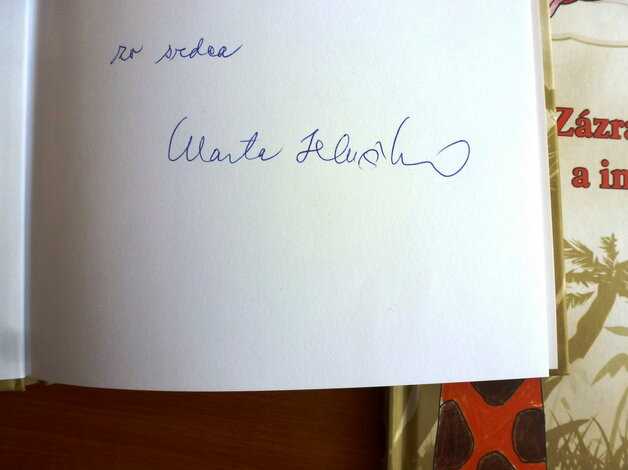 zo srdca
Marta
Zázra
a in